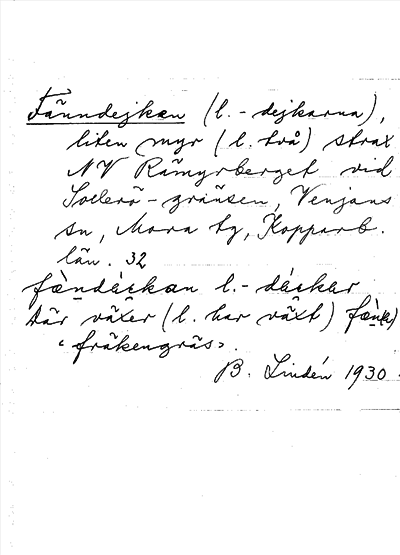 Fänndejkan (l. - dejkarna),
liten myr (l. två) strax
NV Rämyrberget vid
Sollerö - gränsen, Venjans
sn, Mora tg, Kopparb.
län. 32
fæ̀ndàikan l. - dáikar
där växer (l. har växt)
"fräkengräs".
B. Lindén 1930